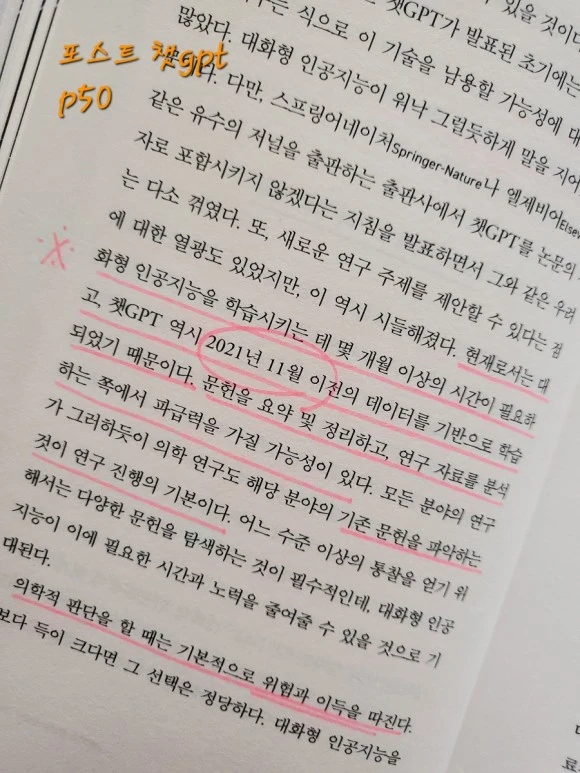 포스트 챗gpt
p50
있을 것이다
는 식으로 이 기술을 남용할 가능성에 대
챗GPT가 발표된 초기에는
많았다. 대화형 인공지능이 워낙 그럴듯하게 말을 지어
다. 다만, 스프링어네이처Springer-Nature나 엘제비어Elsev
같은 유수의 저널을 출판하는 출판사에서 챗GPT를 논문의
자로 포함시키지 않겠다는 지침을 발표하면서 그와 같은 우려
는 다소 꺾였다. 또, 새로운 연구 주제를 제안할 수 있다는 점
에 대한 열광도 있었지만, 이 역시 시들해졌다. 현재로서는 대
화형 인공지능을 학습시키는 데 몇 개월 이상의 시간이 필요하
고, 챗GPT 역시 2021년 11월 이전의 데이터를 기반으로 학습
되었기 때문이다. 문헌을 요약 및 정리하고, 연구 자료를 분석
하는 쪽에서 파급력을 가질 가능성이 있다. 모든 분야의 연구
가 그러하듯이 의학 연구도 해당 분야의 기존 문헌을 파악하는
것이 연구 진행의 기본이다. 어느 수준 이상의 통찰을 얻기 위
해서는 다양한 문헌을 탐색하는 것이 필수적인데, 대화형 인공
지능이 이에 필요한 시간과 노력을 줄여줄 수 있을 것으로 기
대된다.
의학적 판단을 할 때는 기본적으로 위험과 이득을 따진다.
보다 득이 크다면 그 선택은 정당하다. 대화형 인공지능을